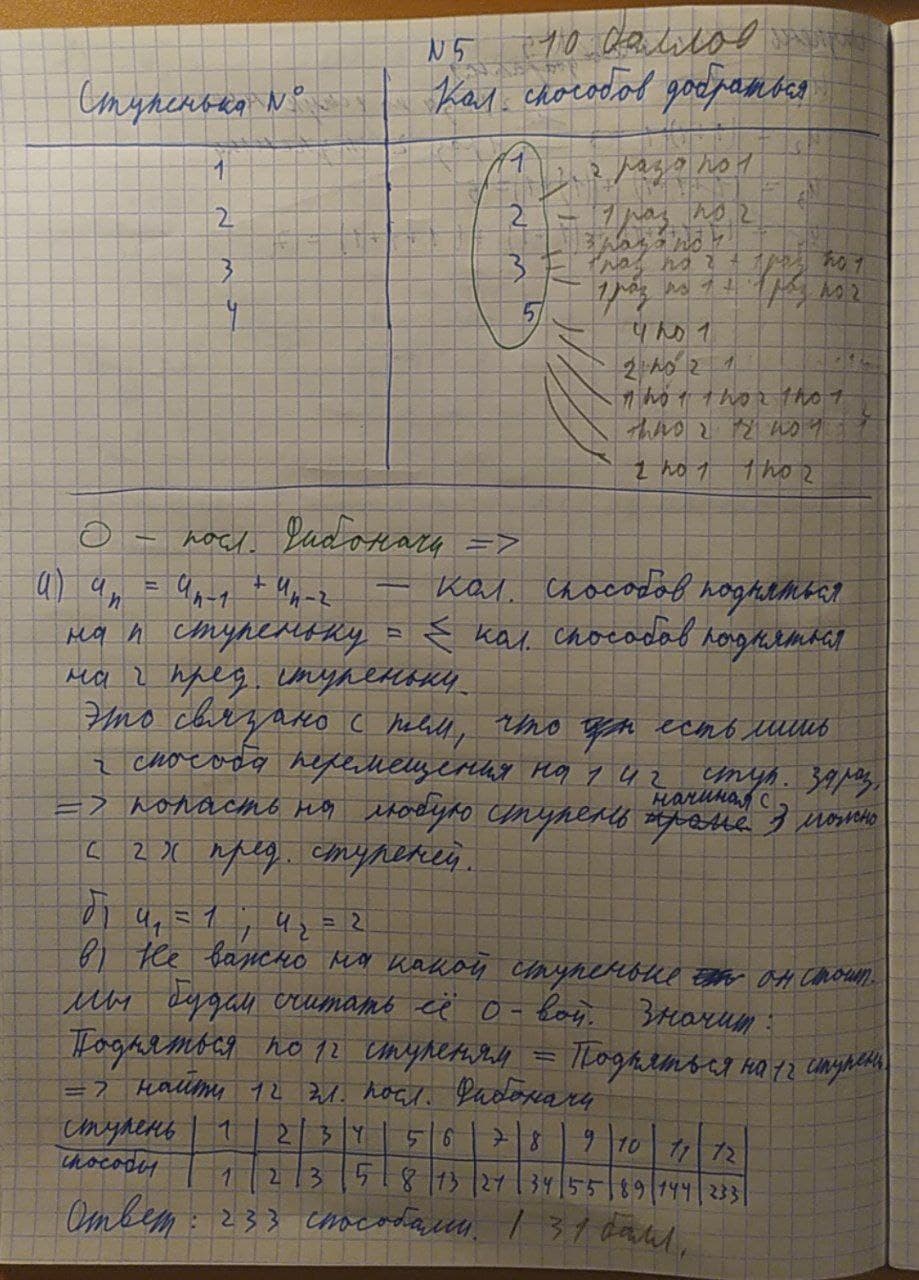 N5 10 баллов
Ступенька № Кол. способов добраться
1 1 2 раза по 1
2 2 – 1 раз по 2
3 раза по 1
3 3 = 1 раз по 2 + 1 раз по 1
1 раз по 1 + 1 раз по 2
4 5
4 по 1
2 по 2
1 по 1 1 по 2 1 по 1
1 по 2 2 по 1
2 по 1 1 по 2
О – посл. Фибоначи =>
а) u_n = u_{n-1} + u_{n-2} — кол. способов подняться
на n ступеньку = Σ кол. способов подняться
на 2 пред. ступеньки.
Это связано с тем, что есть лишь
2 способа перемещения на 1 и 2 ступ. за раз.
=> попасть на любую ступень начиная с 3 можно
с 2х пред. ступеней.
б) u_1 = 1 ; u_2 = 2
в) Не важно на какой ступеньке он стоит.
мы будем считать её 0-вой. Значит:
Подняться по 12 ступеням = Подняться на 12 ступень
=> найти 12 эл. посл. Фибоначи
ступень | 1 | 2 | 3 | 4 | 5 | 6 | 7 | 8 | 9 | 10 | 11 | 12
способы | 1 | 2 | 3 | 5 | 8 | 13 | 21 | 34 | 55 | 89 | 144 | 233
Ответ: 233 способами. / 31 балл.